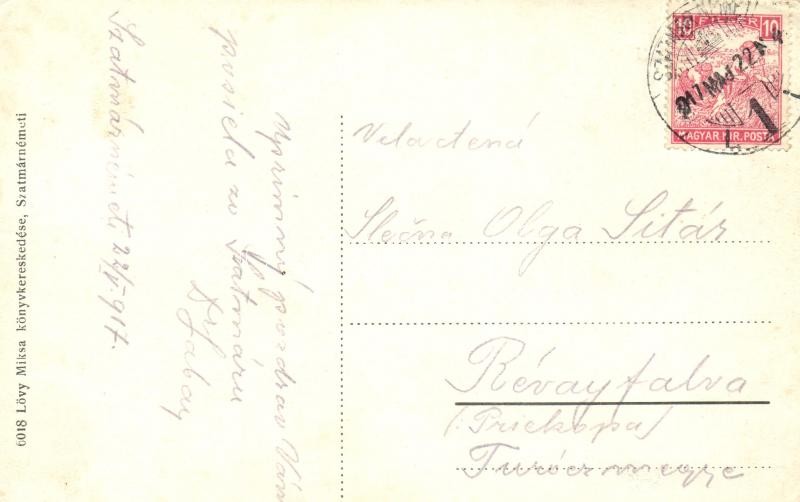 6018 Lövy Miksa könyvkereskedése, Szatmárnémeti
Szatmárnémeti 22/V. 917.
Uprimný pozdrav Vám
posiela zo Szatmáru
10 FILLÉR 10
MAGYAR KIR. POSTA
917 MÁJ 22
1
Velactená
Slečna Olga Sitár
Révayfalva
(: Priekopa)
Turócz megye